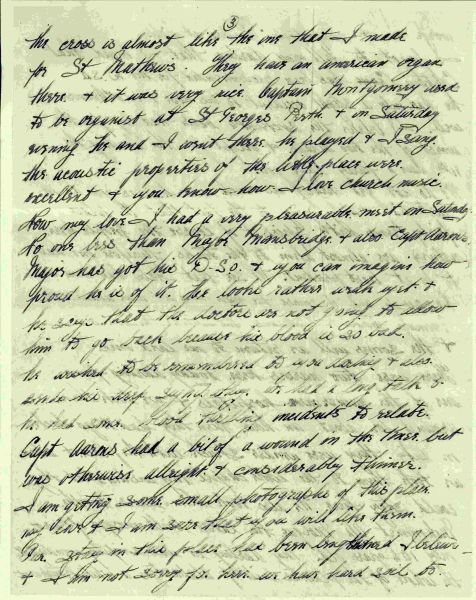 3
the cross is almost like the one that I made
for St Mathews. They have an american organ
there & it was very nice Captain Montgomery used
to be organist at St Georges Perth & on Saturday
evening he and I went there he played & I sang
the acoustic properties of the little place were
excellent & you know how I love church music.
Now my love I had a very pleasurable meet on Saturday
to one less than Major Mansbridge & also Capt Aarons
Major has got his D.S.O. & you can imagine how
proud he is of it. He looks rather weak yet &
he says that the doctors are not going to allow
him to go back because his blood is so bad.
He wished to be remembered to you darling & also
he had some good incidents to relate.
Capt Aarons had a bit of a wound on the knee but
was otherwise allright & considerably thinner.
I am getting some small photographs of this place
my love & I am sure that you will like them.
Our stay in this place had been lengthened I believe
& I am not sorry for here we have hard soil to